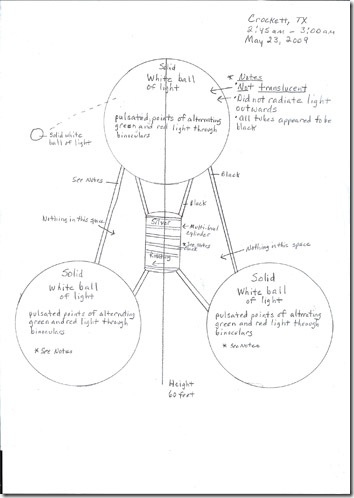 Crockett, TX
2:45 am - 3:00 am
May 23, 2009
* Notes
• Not translucent
• Did not radiate light
outwards
• All tubes appeared to be
black
Solid
White ball
of light
pulsated points of alternating
green and red light through
binoculars
Solid white
ball of light
See Notes
Black
Black
Nothing in this space
Silver
Multi-level
cylinder
* See notes
Black
Rotating
Nothing in this space
Solid
White ball
of light
pulsated points of alternating
green and red light through
binoculars
* See Notes
Solid
White ball
of light
pulsated points of alternating
green and red light through
binoculars
* See Notes
Height
60 feet